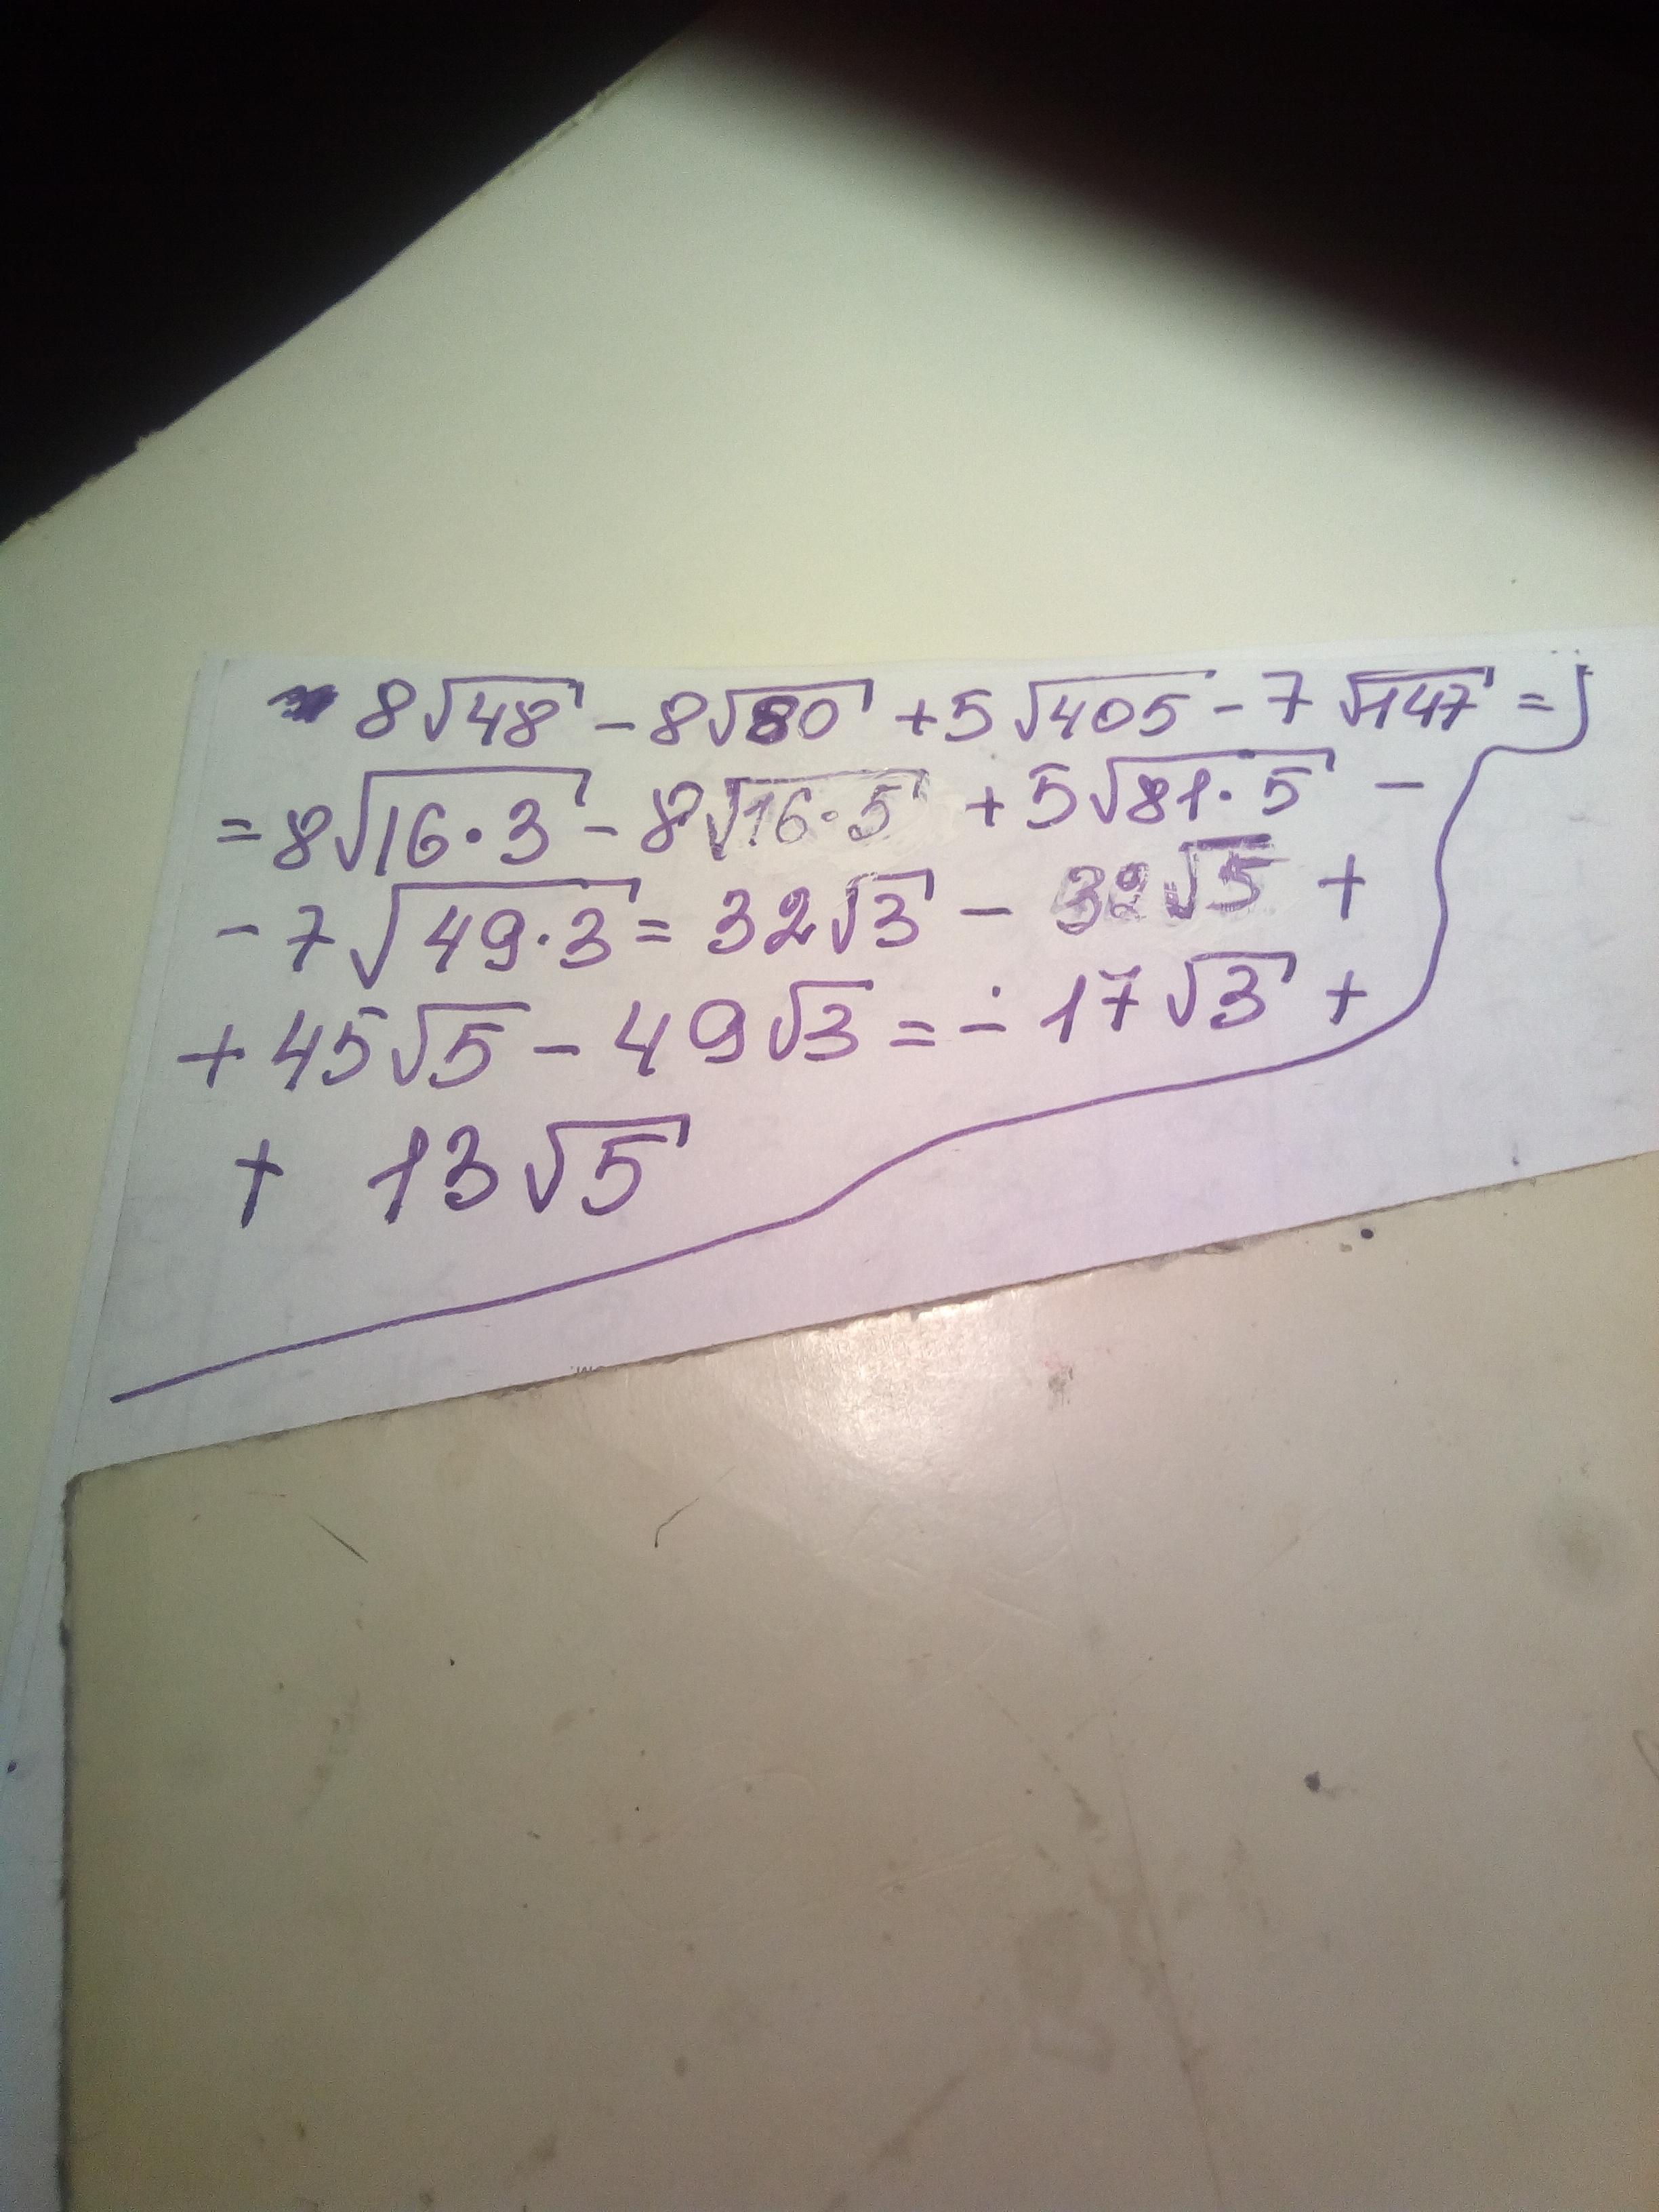 8√48 - 8√80 + 5√405 - 7√147 =
= 8√16·3 - 8√16·5 + 5√81·5 -
- 7√49·3 = 32√3 - 32√5 +
+ 45√5 - 49√3 = - 17√3 +
+ 13√5